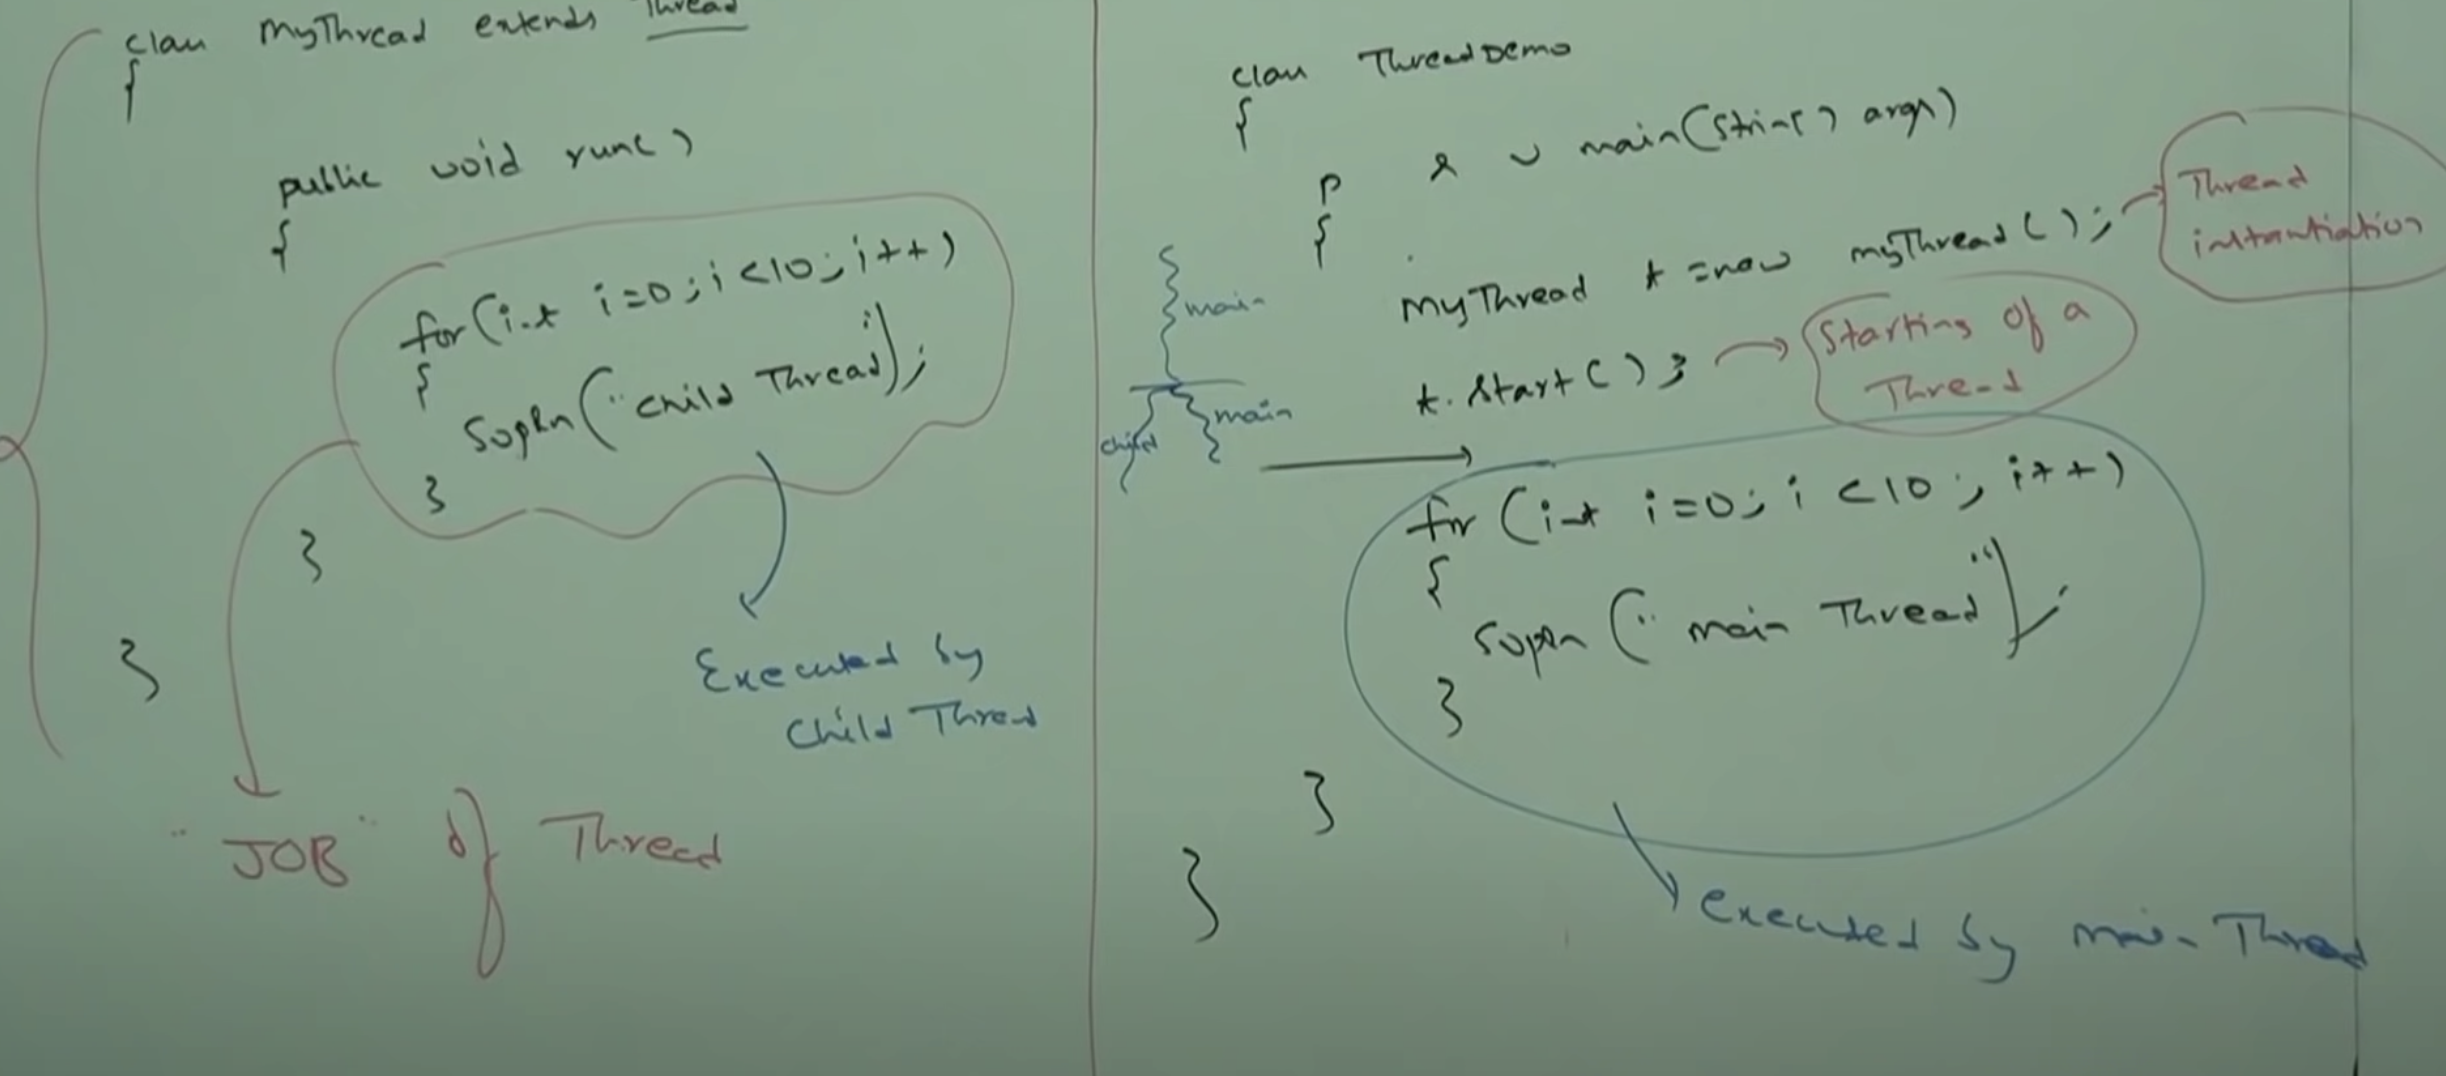 class MyThread extends Thread
{
public void run()
{
for(int i=0; i<10; i++)
{
Sopln("child Thread");
}
}
}
Executed by
Child Thread
"JOB" of Thread
class ThreadDemo
{
p s v main(String[] args)
{
MyThread t = new myThread();
Thread
instantiation
t.start();
Starting of a
Thread
main
child
main
for (int i=0; i<10; i++)
{
Sopln("main Thread");
}
}
}
executed by main Thread